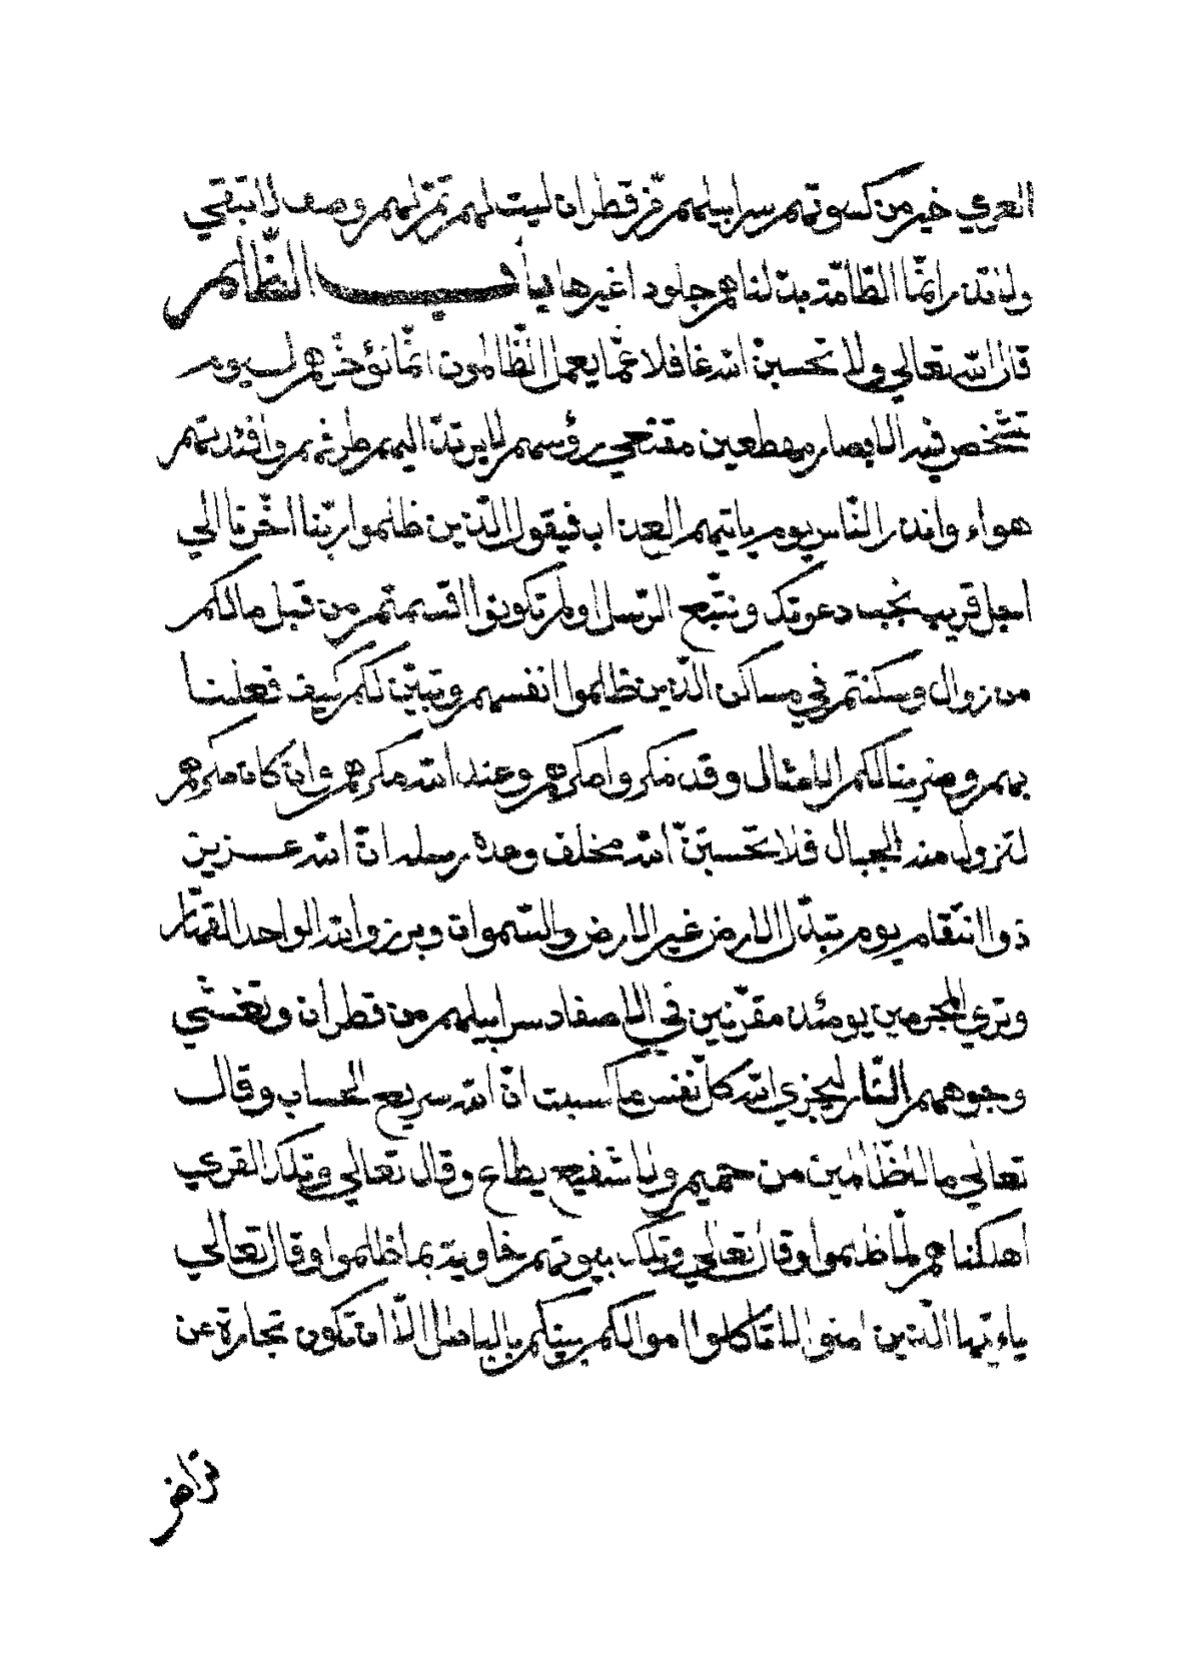 العري خير من كسوتهم سرابيلهم من قطران ليت لهم تمزلهم وصف لا تبقي
ولا تذر انما الظلمة بدلناهم جلودا غيرها باب الظالم
قال الله تعالي ولا تحسبن الله غافلا عما يعمل الظالمون انما نؤخرهم ليوم
تشخص فيه الابصار مهطعين مقنعي رؤسهم لا يرتد اليهم طرفهم وافئدتهم
هواء وانذر الناس يوم ياتيهم العذاب فيقول الذين ظلموا ربنا اخرنا الي
اجل قريب نجب دعوتك ونتبع الرسل اولم تكونوا اقسمتم من قبل مالكم
من زوال وسكنتم في مساكن الذين ظلموا انفسهم وتبين لكم كيف فعلنا
بهم وضربنا لكم الامثال وقد مكروا مكرهم وعند الله مكرهم وان كان مكرهم
لتزول منه الجبال فلا تحسبن الله مخلف وعده رسله ان الله عزيز
ذو انتقام يوم تبدل الارض غير الارض والسموات وبرزوا لله الواحد القهار
وتري المجرمين يومئذ مقرنين في الاصفاد سرابيلهم من قطران وتغشي
وجوههم النار ليجزي الله كل نفس ما كسبت ان الله سريع الحساب وقال
تعالي ما للظالمين من حميم ولا شفيع يطاع وقال تعالي وتلك القري
اهلكناهم لما ظلموا وقال تعالي وتلك بيوتهم خاوية بما ظلموا وقال تعالي
ياءيها الذين امنوا لا تاكلوا اموالكم بينكم بالباطل الا ان تكون تجارة عن
تراض